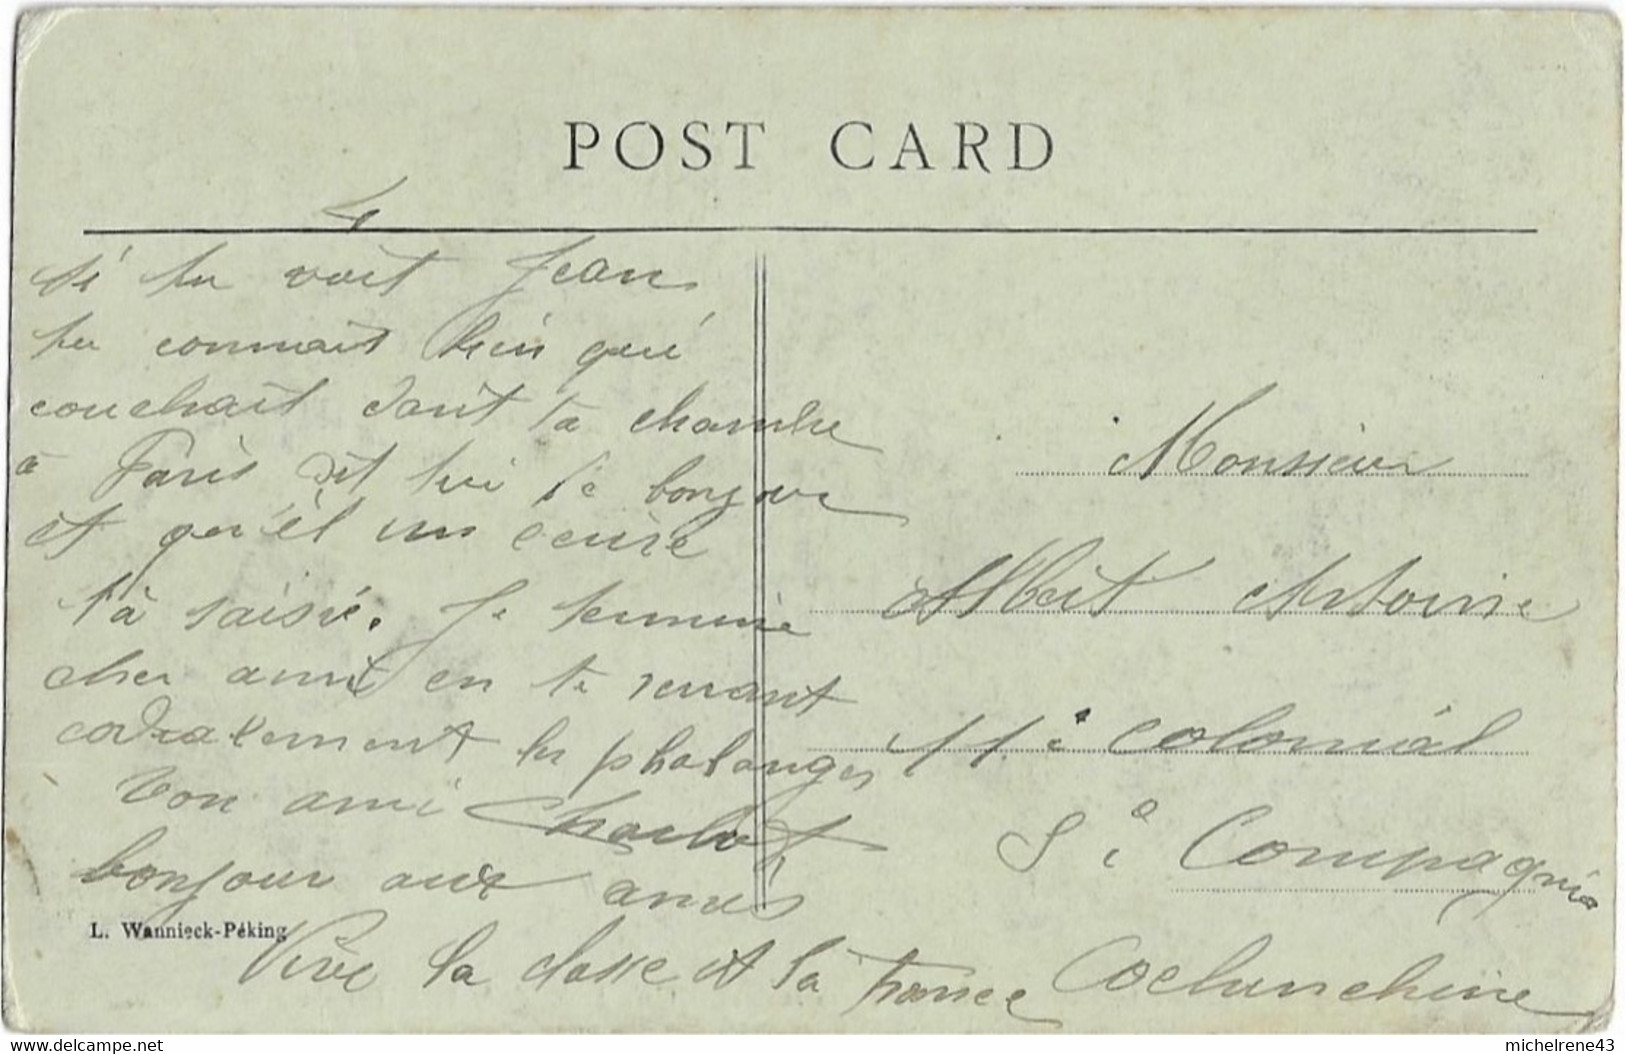 POST CARD
si tu voit Jean
tu connait bien qui
couchait dant ta chambre
à Paris dit lui le bonjour
et qu'il un
t'à saisie. Je termine
cher ami en te serrant
cordialement les phalanges
ton ami Charlot
bonjour aux amis
Vive la classe et la France
L. Wannieck-Péking
Monsieur
Albert Antoine
11e Colonial
Compagnie
Cochinchine
delcampe.net
michelrene43